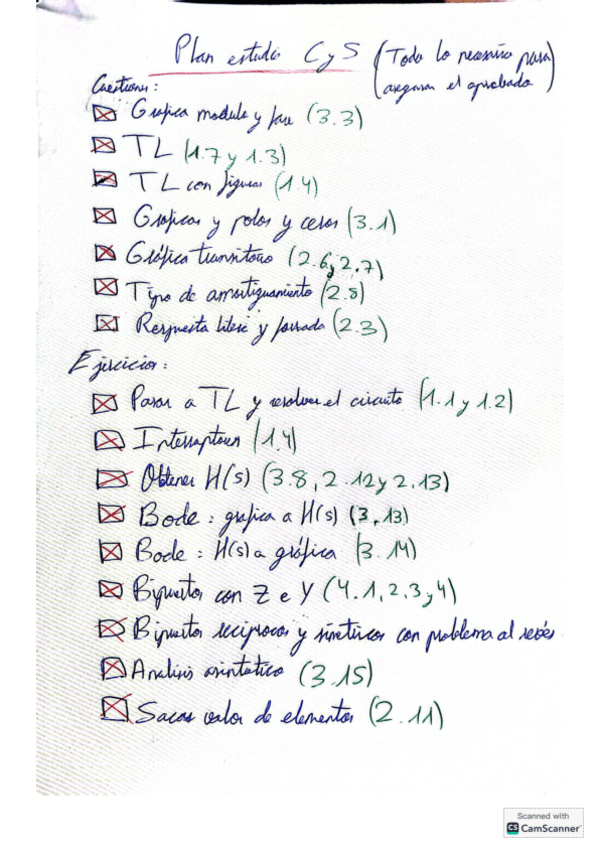 Plan estudio C y S (Todo lo necesario para
asegurar el aprobado)
Cuestiones:
Grafica modulo y fase (3.3)
TL (1.7 y 1.3)
TL con figuras (1.4)
Graficas y polos y ceros (3.1)
Gráfica transitorio (2.6 y 2.7)
Tipo de amortiguamiento (2.8)
Respuesta libre y forzada (2.3)
Ejercicios:
Pasar a TL y resolver el circuito (1.1 y 1.2)
Interruptores (1.4)
Obtener H(s) (3.8, 2.12 y 2.13)
Bode: grafica a H(s) (3.13)
Bode: H(s) a gráfica (3.14)
Bipuertos con Z e Y (4.1, 2, 3 y 4)
Bipuertos recíprocos y simétricos con problema al revés
Analisis asintotico (3.15)
Sacar valor de elementos (2.11)
Scanned with
CS CamScanner